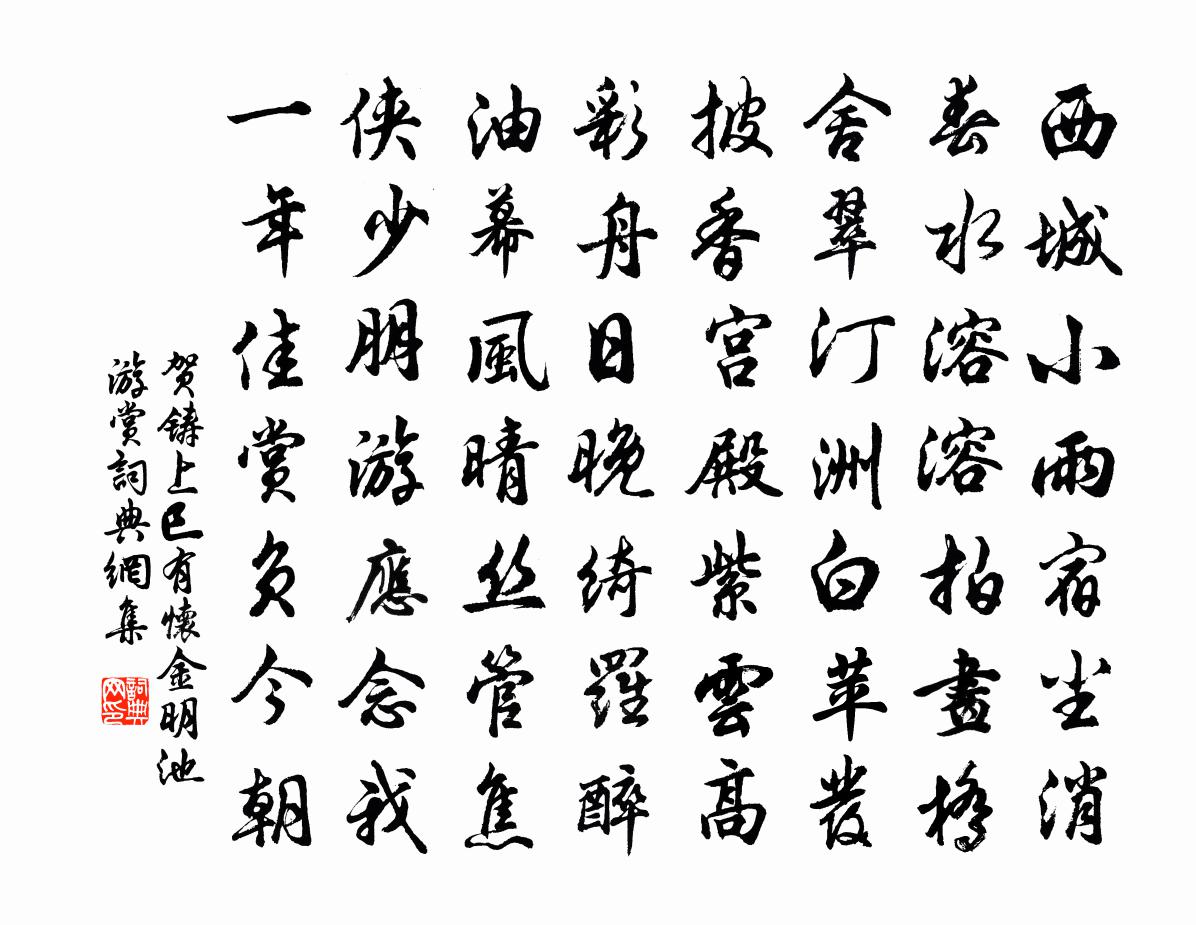 西城小雨宿尘消
春水溶溶拍畫橋
舍翠汀洲白苹發
披香宫殿紫雲高
彩舟日晚綺羅醉
油幕風晴丝管焦
侠少朋游應念我
一年佳赏负今朝
贺鑄上巳有懷金明池
游赏詞典網集
詞典网印